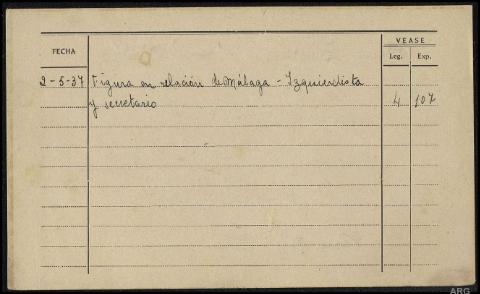 VEASE
FECHA
Leg. Exp.
2-5-37 Figura en relación de Málaga - Izquierdista
y secretario 4 107
ARG